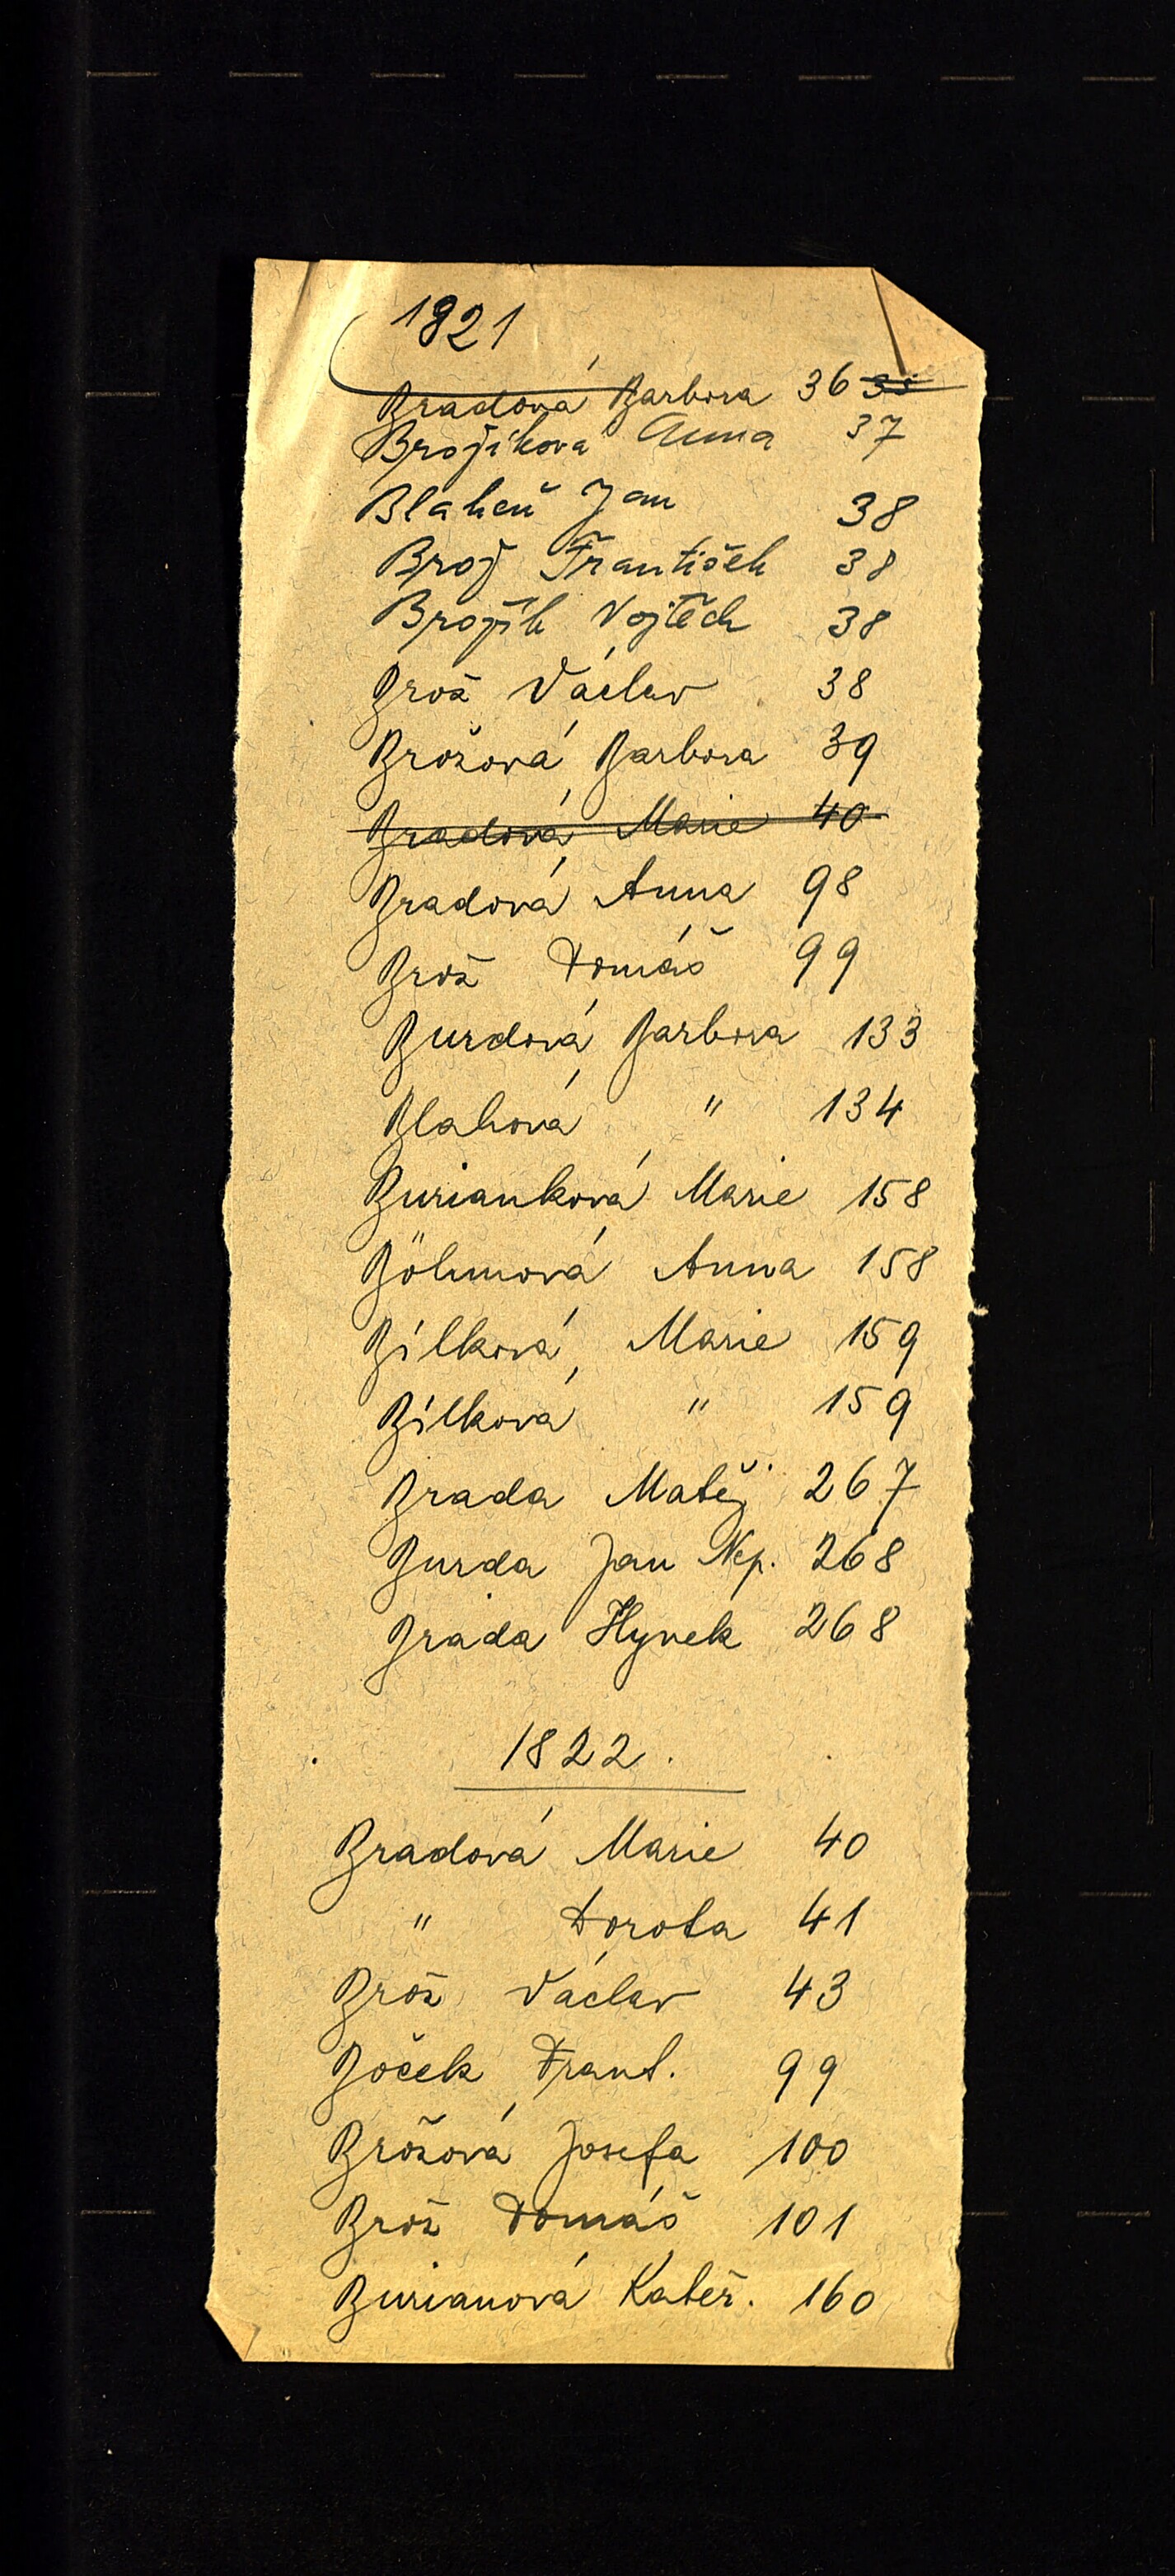 1821
Bradová Barbora 36
Brožíková Anna 37
Blaheň Jan 38
Brož František 38
Brožík Vojtěch 38
Brož Václav 38
Brožová Barbora 39
Bradová Marie 40
Bradová Anna 98
Brož Tomáš 99
Burdová Barbora 133
Blahová " 134
Burianková Marie 158
Böhmová Anna 158
Bílková Marie 159
Bílková " 159
Brada Matěj 267
Burda Jan Nep. 268
Brada Hynek 268
1822.
Bradová Marie 40
" Dorota 41
Brož Václav 43
Boček Frant. 99
Brožová Josefa 100
Brož Tomáš 101
Burianová Kateř. 160